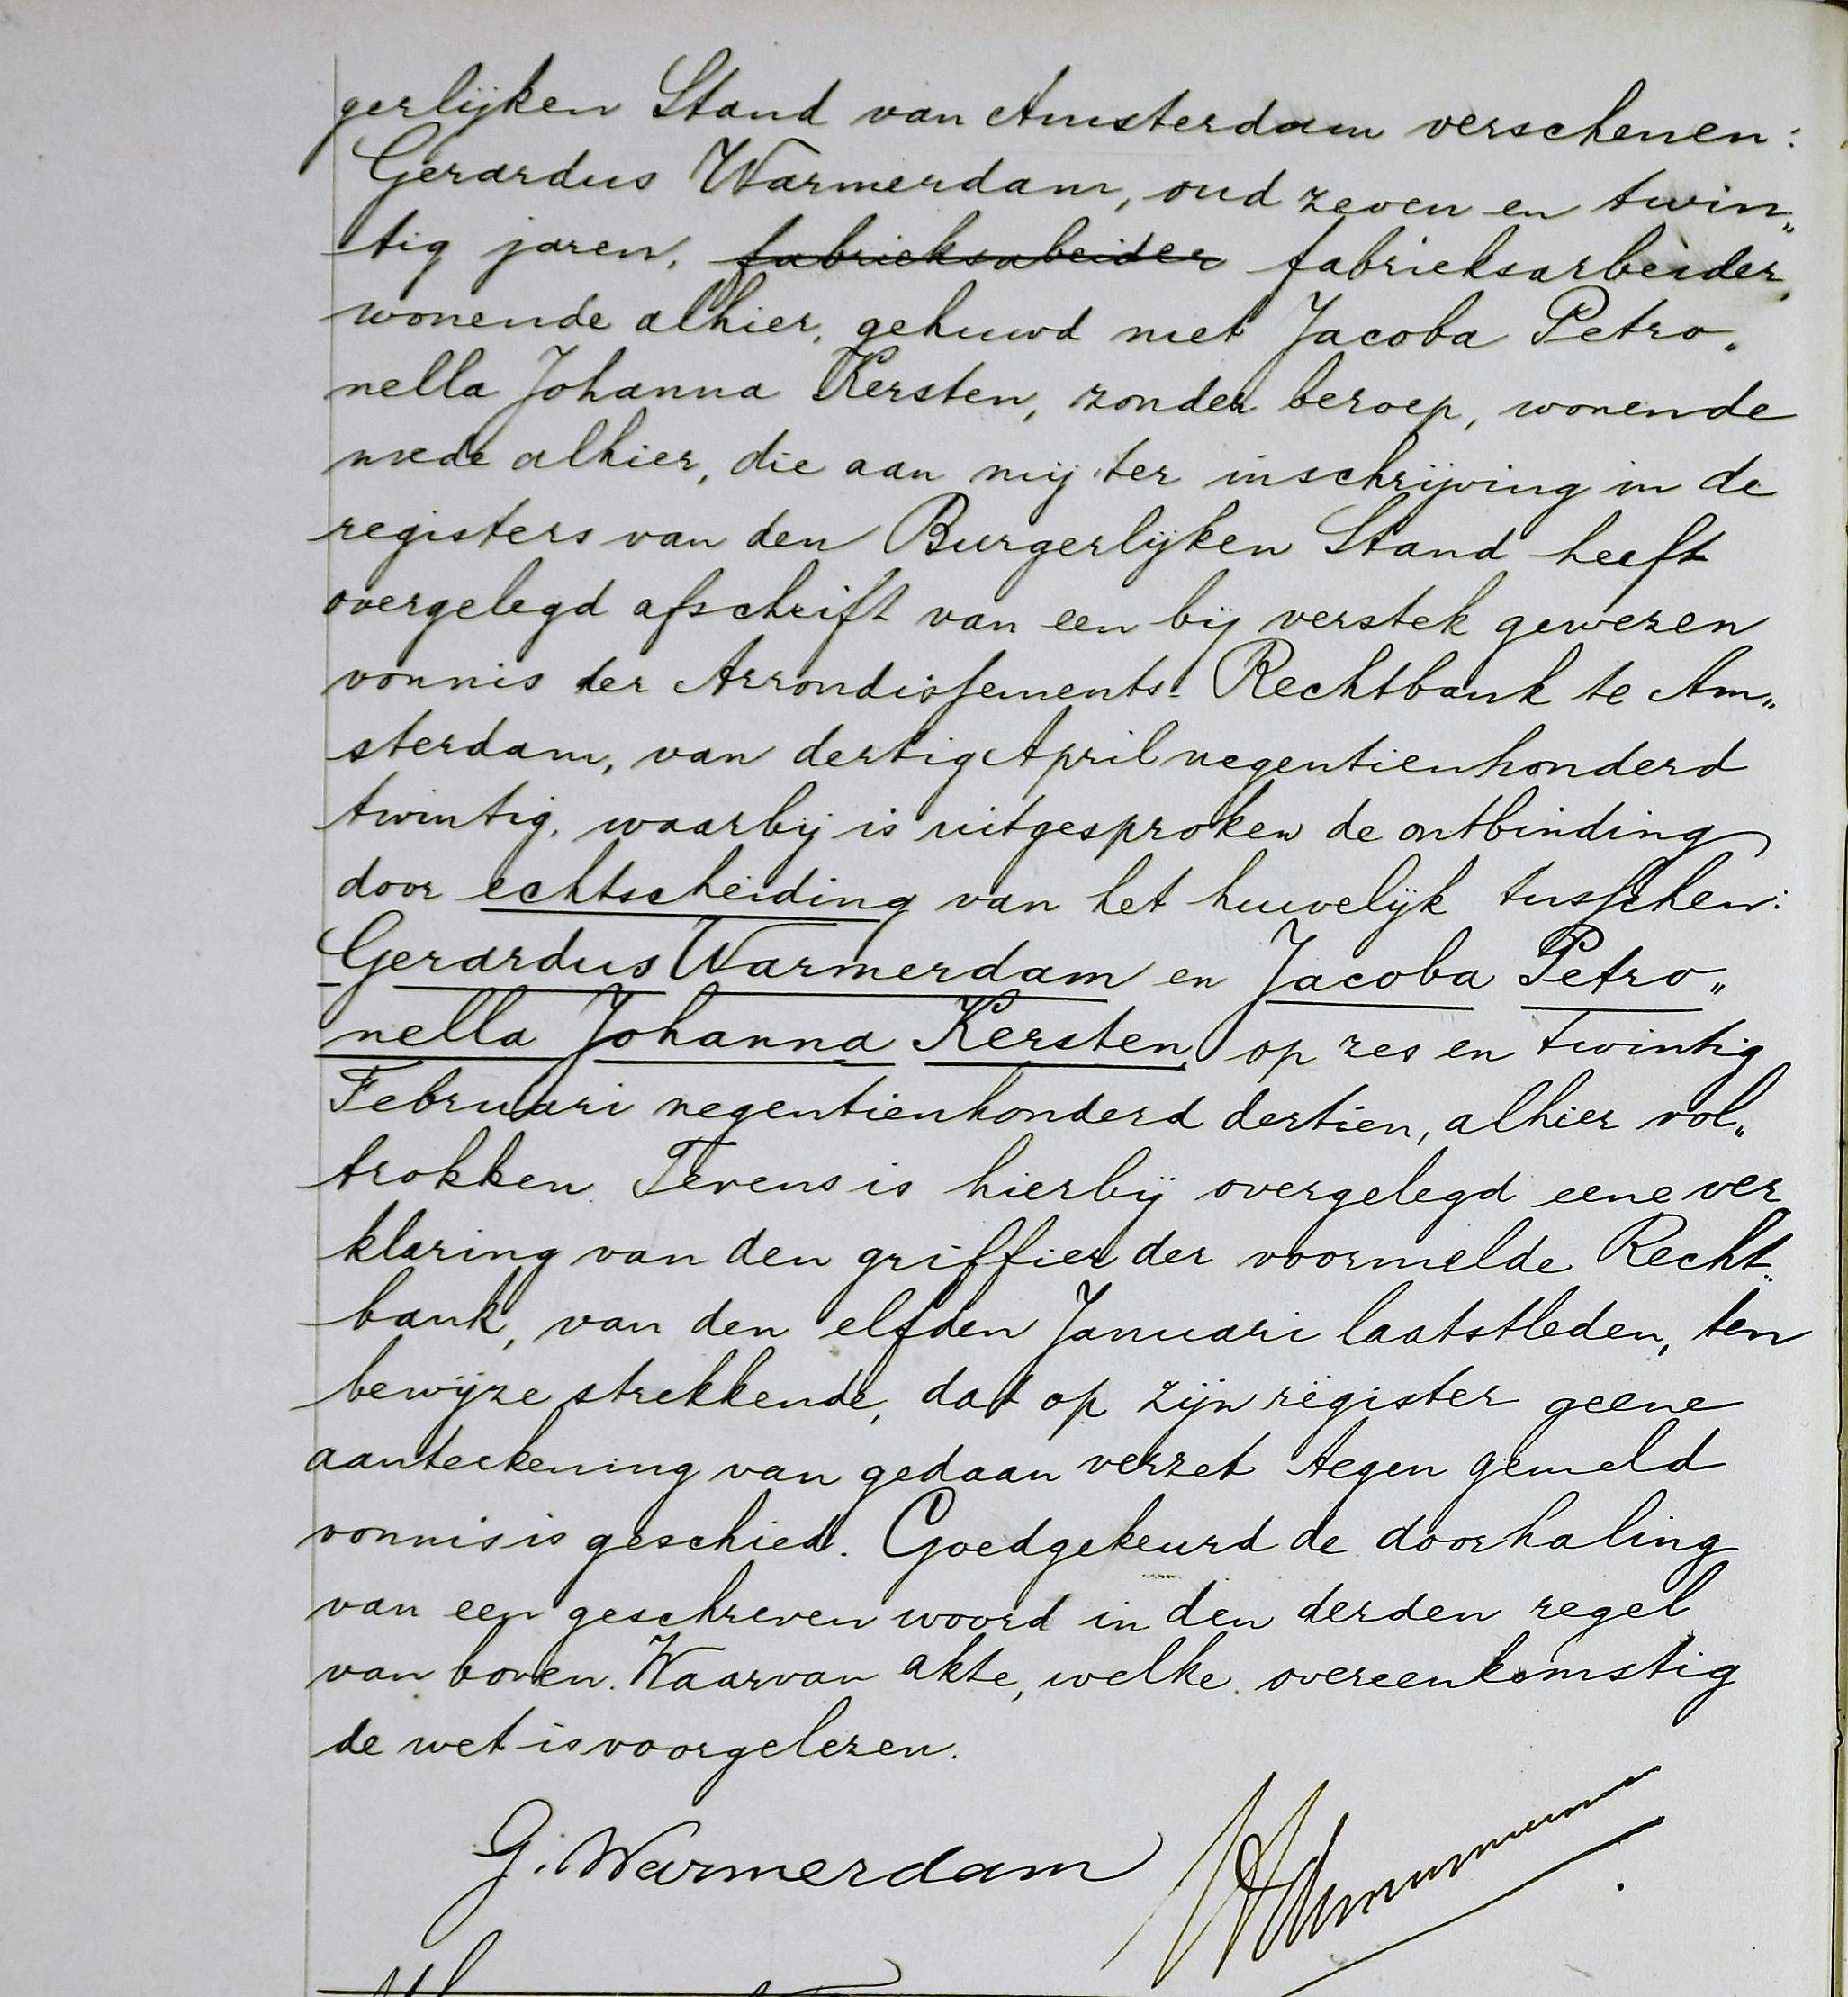 gerlijken Stand van Amsterdam verschenen:
Gerardus Warmerdam, oud zeven en twin„
tig jaren, fabrieksabeider fabrieksarbeider,
wonende alhier, gehuwd met Jacoba Petro„
nella Johanna Kersten, zonder beroep, wonende
mede alhier, die aan mij ter inschrijving in de
registers van den Burgerlijken Stand heeft
overgelegd afschrift van een bij verstek gewezen
vonnis der Arrondissements-Rechtbank te Am„
sterdam, van dertig April negentienhonderd
twintig, waarbij is uitgesproken de ontbinding
door echtscheiding van het huwelijk tusschen:
Gerardus Warmerdam en Jacoba Petro„
nella Johanna Kersten, op zes en twintig
Februari negentienhonderd dertien, alhier vol„
trokken. Tevens is hierbij overgelegd eene ver
klaring van den griffier der voormelde Recht„
bank, van den elfden Januari laatstleden, ten
bewijze strekkende, dat op zijn register geene
aanteekening van gedaan verzet tegen gemeld
vonnis is geschied. Goedgekeurd de doorhaling
van een geschreven woord in den derden regel
van boven. Waarvan akte, welke overeenkomstig
de wet is voorgelezen.
G. Warmerdam